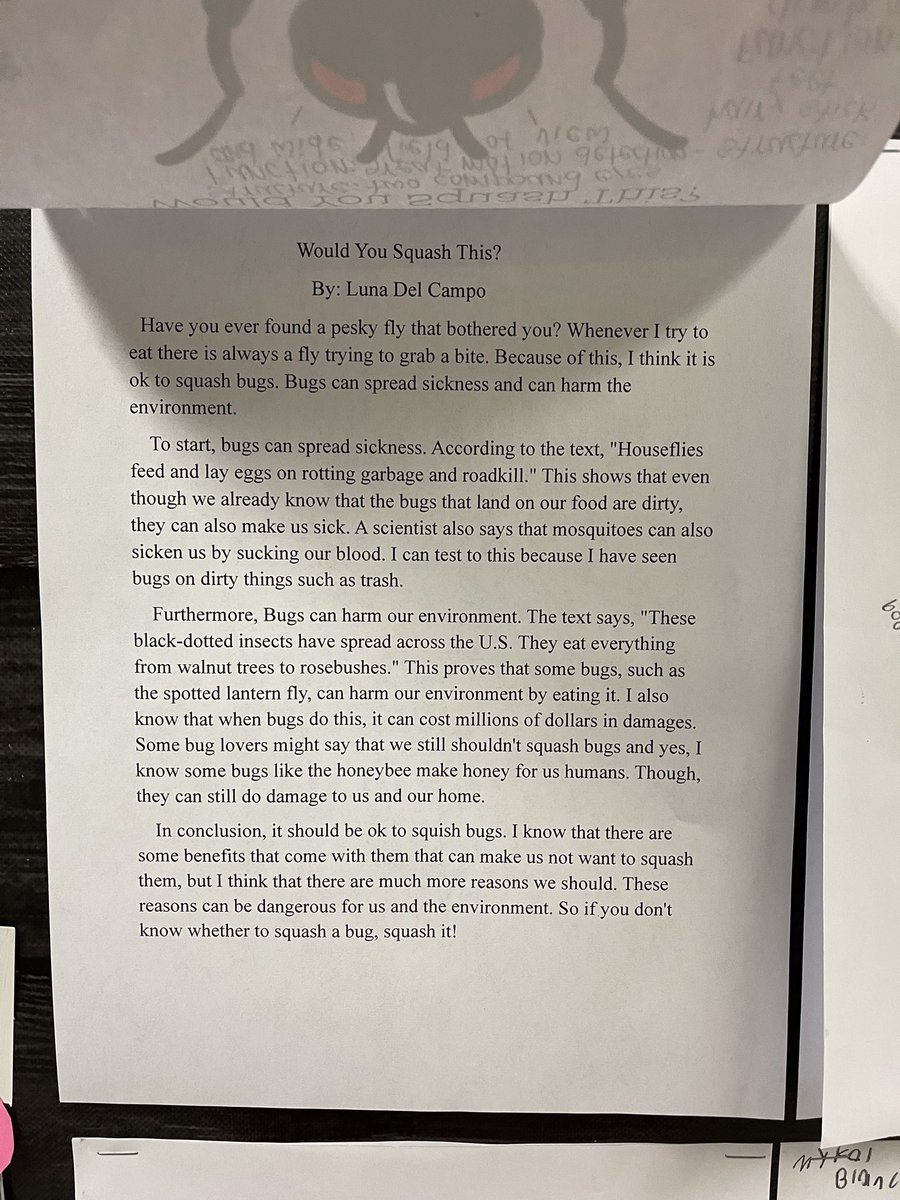 Would You Squash This?
By: Luna Del Campo
Have you ever found a pesky fly that bothered you? Whenever I try to
eat there is always a fly trying to grab a bite. Because of this, I think it is
ok to squash bugs. Bugs can spread sickness and can harm the
environment.
To start, bugs can spread sickness. According to the text, "Houseflies
feed and lay eggs on rotting garbage and roadkill." This shows that even
though we already know that the bugs that land on our food are dirty,
they can also make us sick. A scientist also says that mosquitoes can also
sicken us by sucking our blood. I can test to this because I have seen
bugs on dirty things such as trash.
Furthermore, Bugs can harm our environment. The text says, "These
black-dotted insects have spread across the U.S. They eat everything
from walnut trees to rosebushes." This proves that some bugs, such as
the spotted lantern fly, can harm our environment by eating it. I also
know that when bugs do this, it can cost millions of dollars in damages.
Some bug lovers might say that we still shouldn't squash bugs and yes, I
know some bugs like the honeybee make honey for us humans. Though,
they can still do damage to us and our home.
In conclusion, it should be ok to squish bugs. I know that there are
some benefits that come with them that can make us not want to squash
them, but I think that there are much more reasons we should. These
reasons can be dangerous for us and the environment. So if you don't
know whether to squash a bug, squash it!
Would You Squash This?
Structure: two compound eyes
Function: great motion detection
and wide field of view